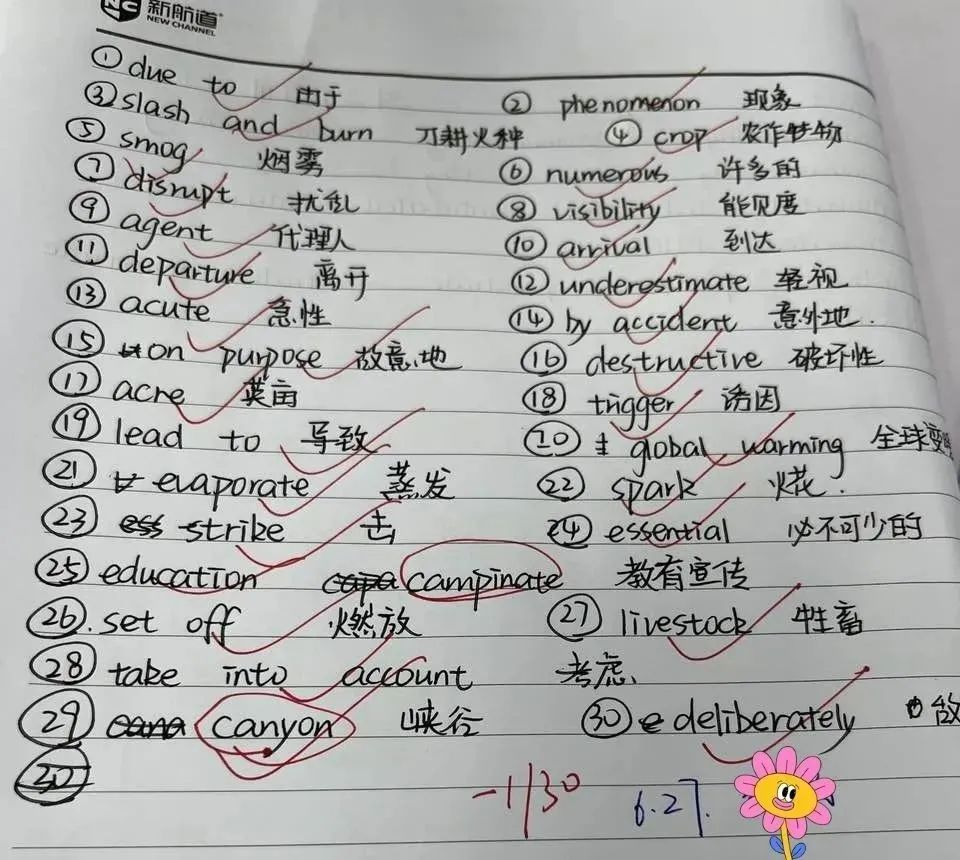 新航道
NEW CHANNEL
① due to 由于 ② phenomenon 现象
③ slash and burn 刀耕火种 ④ crop 农作物
⑤ smog 烟雾 ⑥ numerous 许多的
⑦ disrupt 扰乱 ⑧ visibility 能见度
⑨ agent 代理人 ⑩ arrival 到达
⑪ departure 离开 ⑫ underestimate 轻视
⑬ acute 急性 ⑭ by accident 意外地.
⑮ on purpose 故意地 ⑯ destructive 破坏性
⑰ acre 英亩 ⑱ trigger 诱因
⑲ lead to 导致 ⑳ global warming 全球变
㉑ evaporate 蒸发 ㉒ spark 火花.
㉓ strike 击 ㉔ essential 必不可少的
㉕ education campinate 教育宣传
㉖. set off 燃放 ㉗ livestock 牲畜
㉘ take into account 考虑
㉙ canyon 峡谷 ㉚ deliberately 故
30
-1/30 6.27.